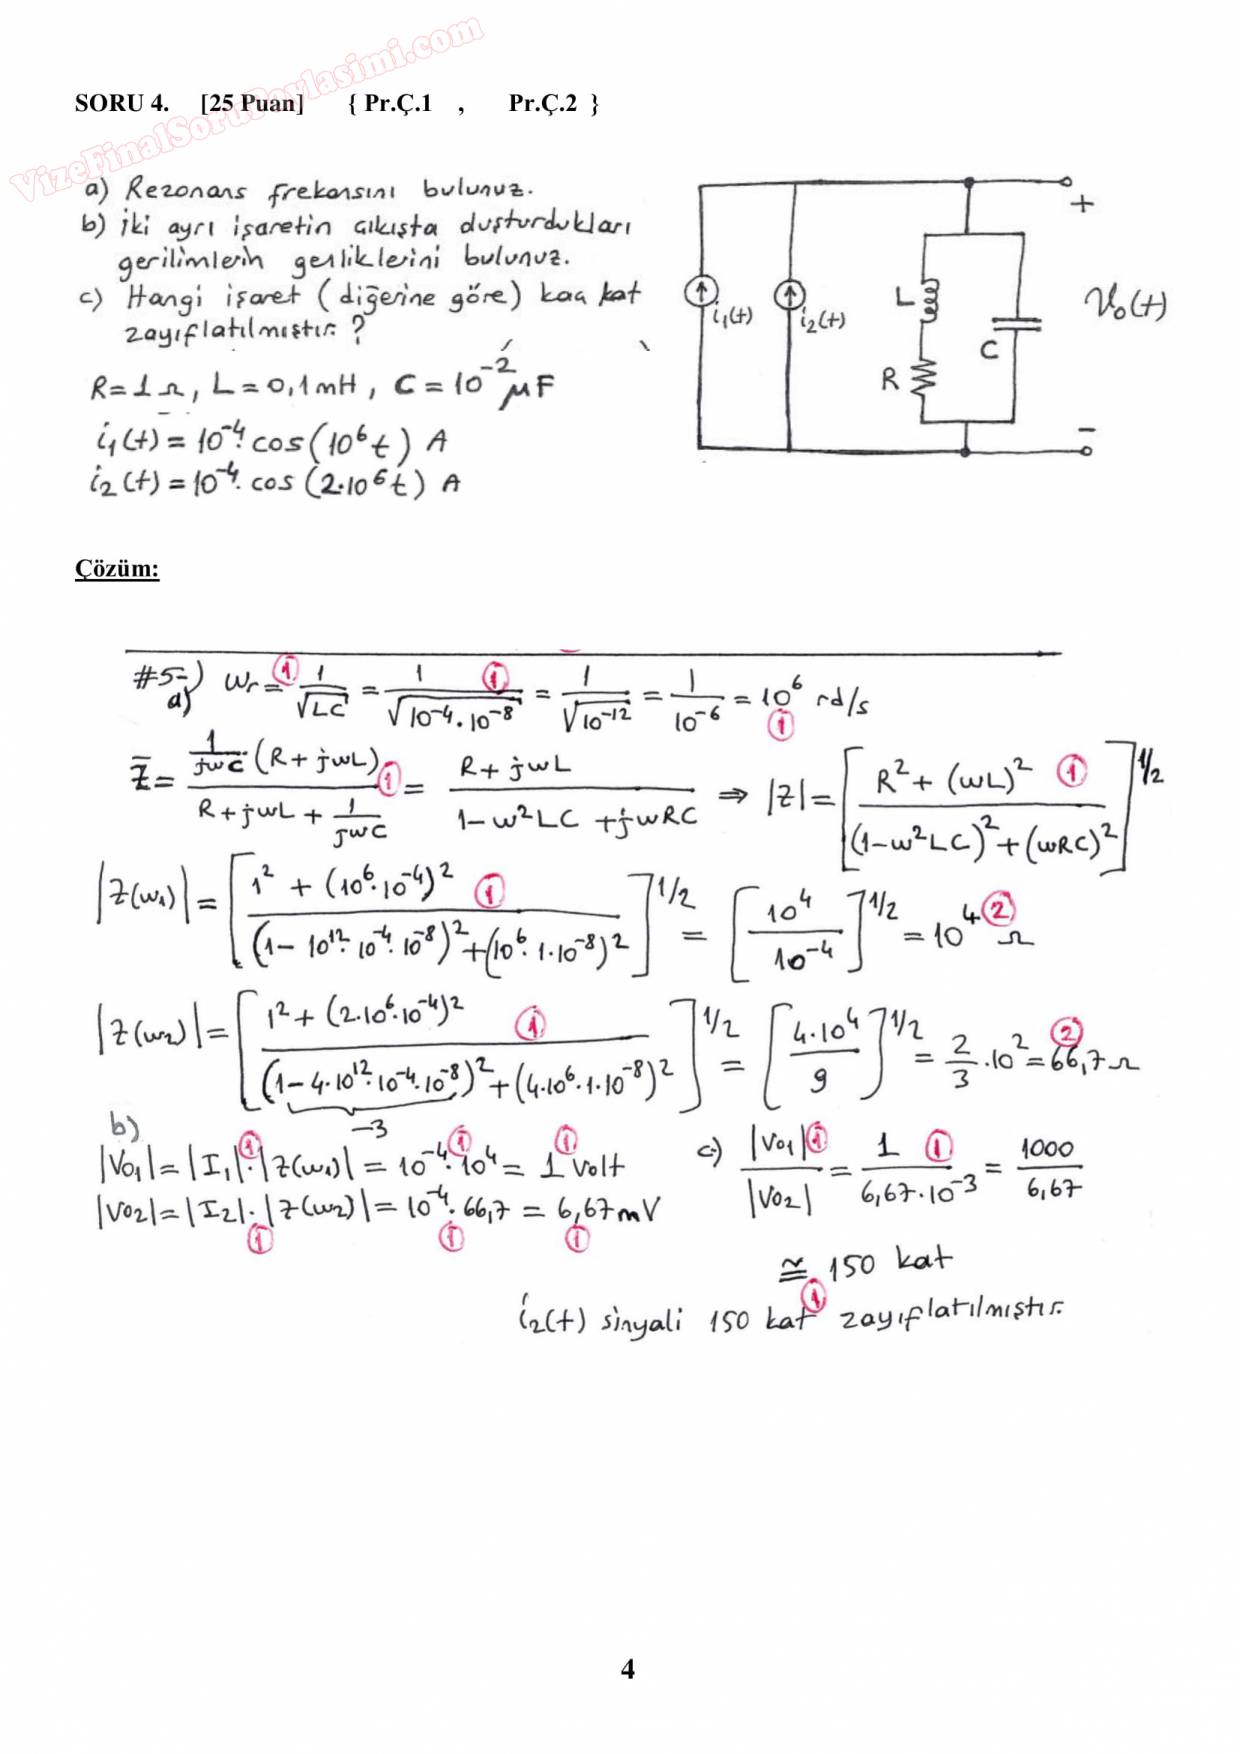 VizeFinalSoruPaylasimi.com
SORU 4. [25 Puan] { Pr.Ç.1 , Pr.Ç.2 }
a) Rezonans frekansını bulunuz.
b) İki ayrı işaretin çıkışta duşturdukları
gerilimlerin genliklerini bulunuz.
c) Hangi işaret (diğerine göre) kaç kat
zayıflatılmıştır?
R=1Ω, L=0,1mH, C=10⁻² μF
i₁(t)=10⁻⁴·cos(10⁶t) A
i₂(t)=10⁻⁴·cos(2·10⁶t) A
i₁(t) i₂(t) L R C + − V₀(t)
Çözüm:
#5-) a) ωr = ① 1/√LC = 1/√(10⁻⁴·10⁻⁸) ① = 1/√(10⁻¹²) = 1/10⁻⁶ = 10⁶ rd/s ①
Z̄ = (1/jωC)(R+jωL) / (R+jωL+1/jωC) ① = (R+jωL) / (1-ω²LC+jωRC) ⇒ |Z| = [ (R²+(ωL)²) ① / ((1-ω²LC)²+(ωRC)²) ]^1/2
|Z(ω₁)| = [ (1²+(10⁶·10⁻⁴)²) ① / ((1-10¹²·10⁻⁴·10⁻⁸)²+(10⁶·1·10⁻⁸)²) ]^1/2 = [ 10⁴/10⁻⁴ ]^1/2 = 10⁴ Ω ②
|Z(ω₂)| = [ (1²+(2·10⁶·10⁻⁴)²) ① / ((1-4·10¹²·10⁻⁴·10⁻⁸)²+(4·10⁶·1·10⁻⁸)²) ]^1/2 = [ 4·10⁴/9 ]^1/2 = 2/3·10² = 66,7 Ω ②
-3
b)
|V₀₁| = |I₁|·①|Z(ω₁)| = 10⁻⁴·①10⁴ = 1 Volt ①
|V₀₂| = |I₂|·|Z(ω₂)| = 10⁻⁴·66,7 = 6,67mV
① ① ①
c) |V₀₁| ① / |V₀₂| = 1 ① / 6,67·10⁻³ = 1000/6,67
≅ 150 kat
①
i₂(t) sinyali 150 kat zayıflatılmıştır.
4